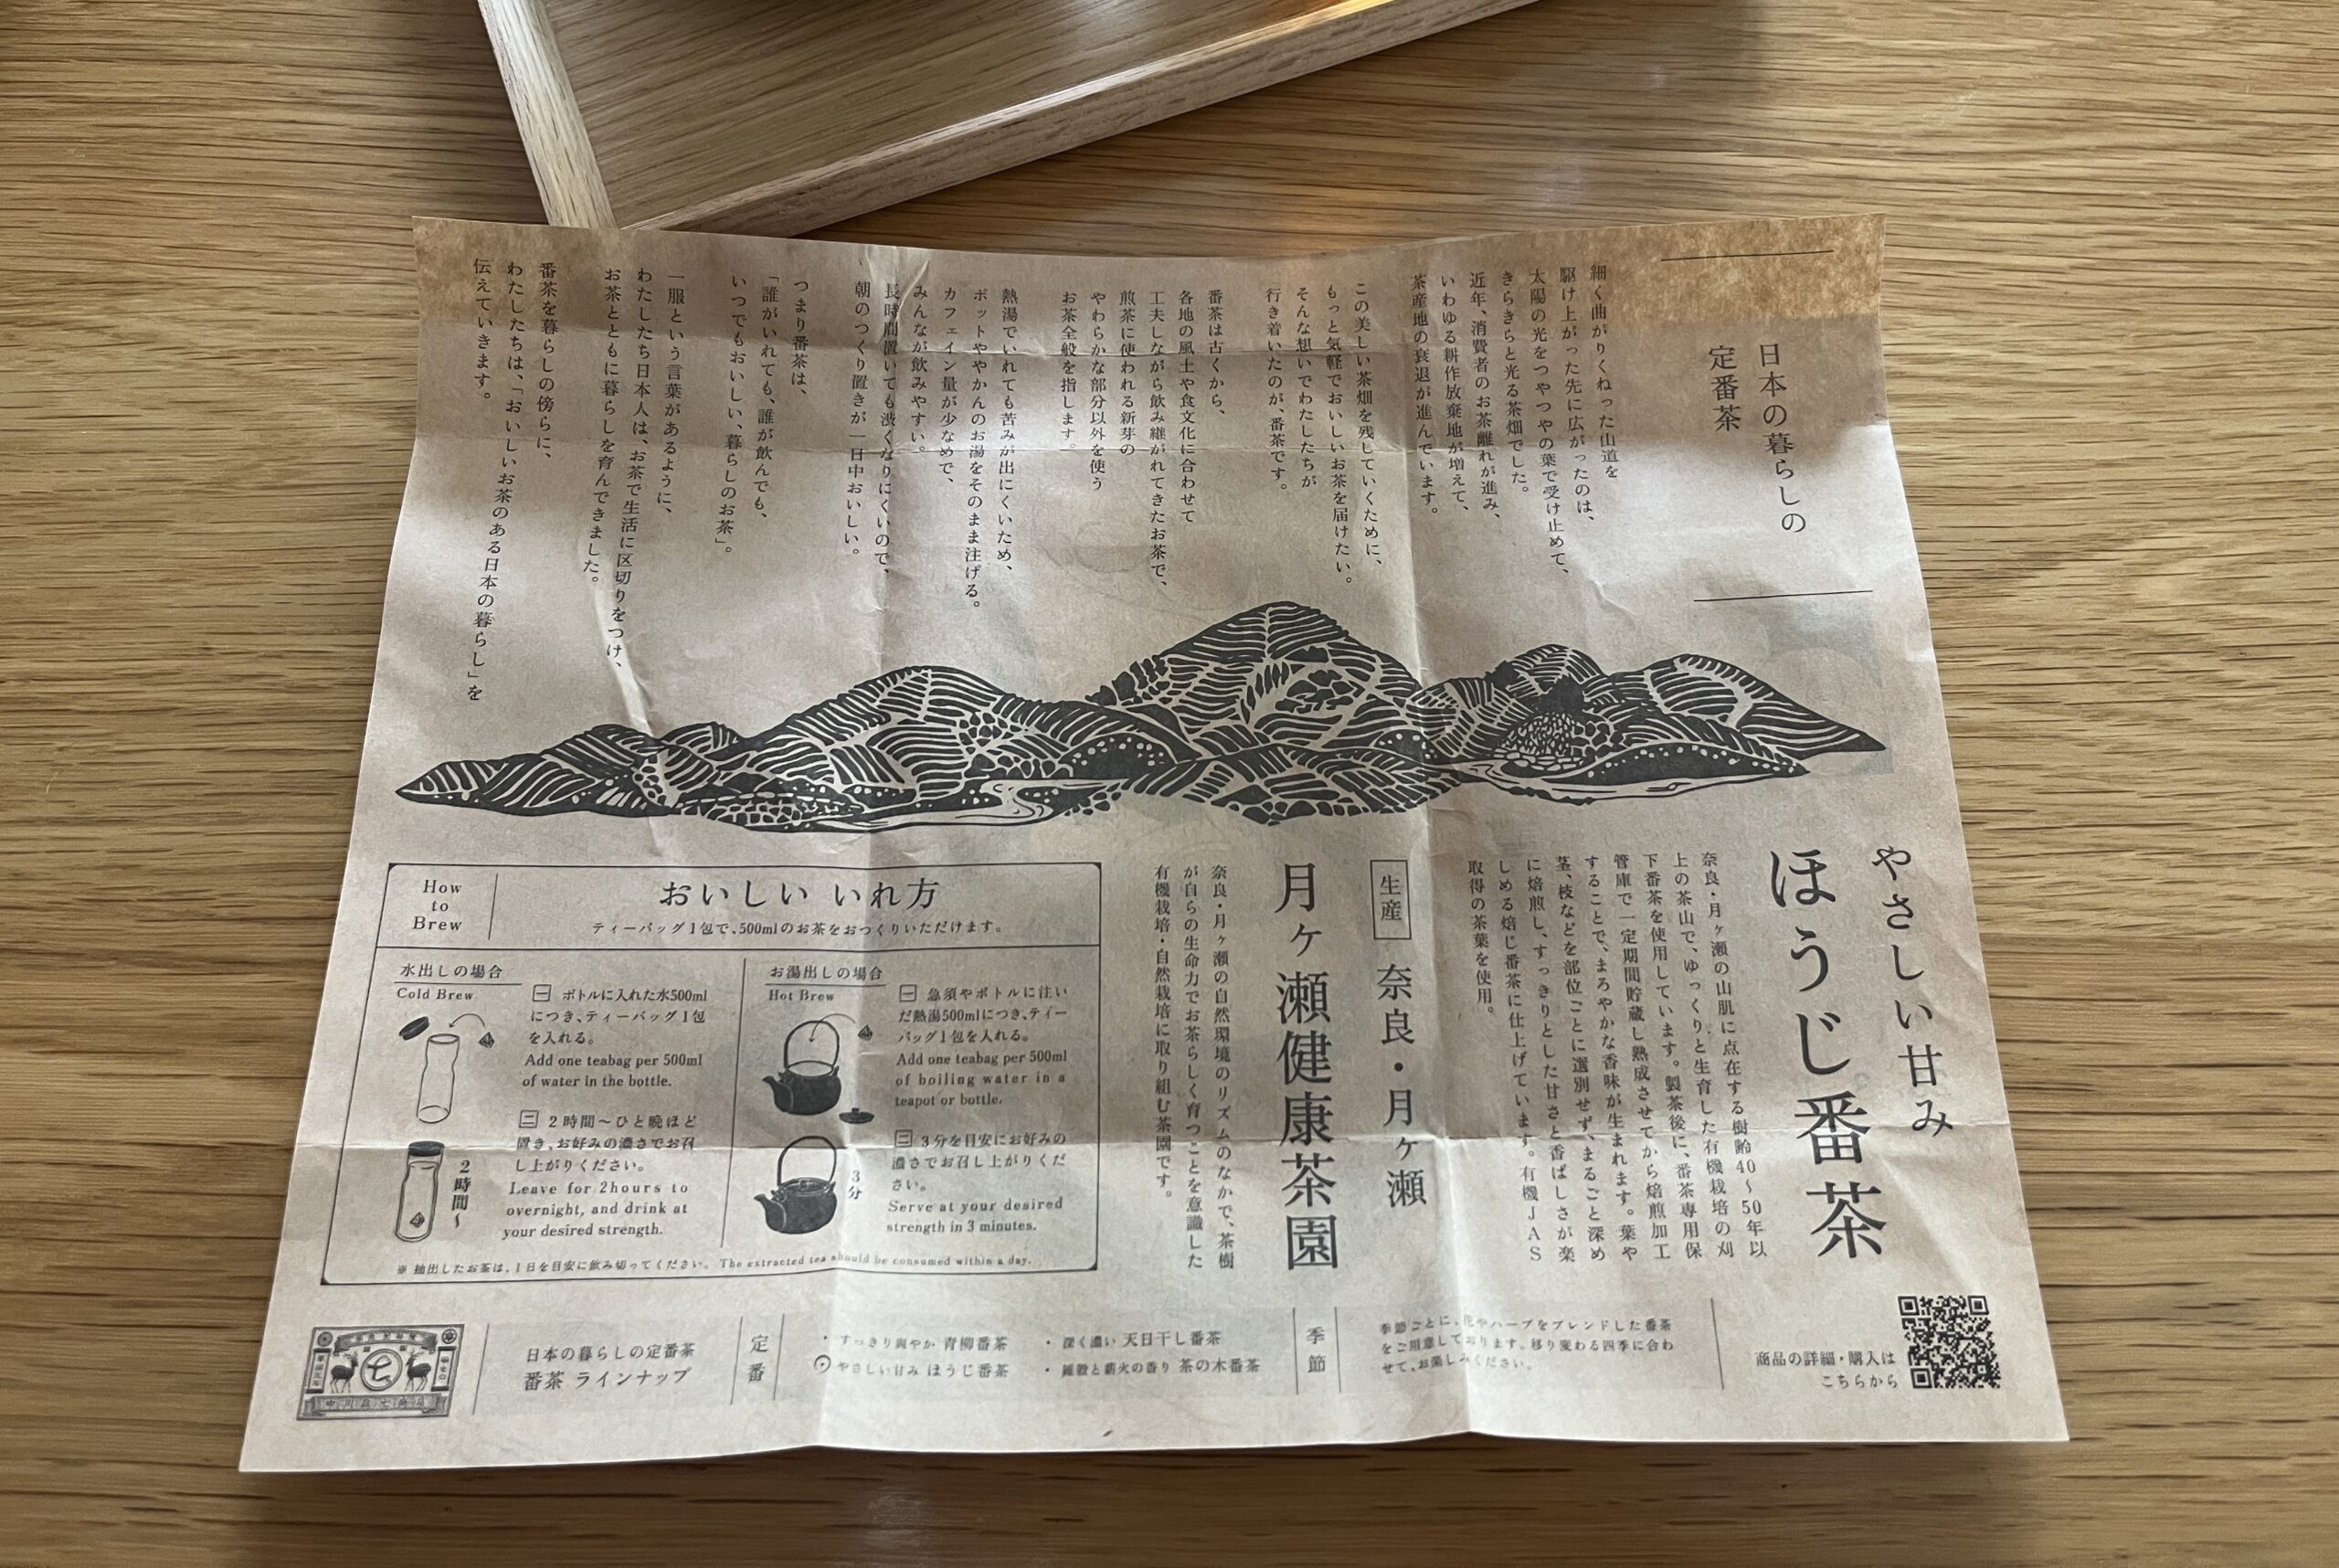 日本の暮らしの
定番茶
細く曲がりくねった山道を
駆け上がった先に広がったのは、
太陽の光をつやつやの葉で受け止めて、
きらきらと光る茶畑でした。
近年、消費者のお茶離れが進み、
いわゆる耕作放棄地が増えて、
茶産地の衰退が進んでいます。
この美しい茶畑を残していくために、
もっと気軽でおいしいお茶を届けたい。
そんな想いでわたしたちが
行き着いたのが、番茶です。
番茶は古くから、
各地の風土や食文化に合わせて
工夫しながら飲み継がれてきたお茶で、
煎茶に使われる新芽の
やわらかな部分以外を使う
お茶全般を指します。
熱湯でいれても苦みが出にくいため、
ポットややかんのお湯をそのまま注げる。
カフェイン量が少なめで、
みんなが飲みやすい。
長時間置いても渋くなりにくいので、
朝のつくり置きが一日中おいしい。
つまり番茶は、
「誰がいれても、誰が飲んでも、
いつでもおいしい、暮らしのお茶」。
一服という言葉があるように、
わたしたち日本人は、お茶で生活に区切りをつけ、
お茶とともに暮らしを育んできました。
番茶を暮らしの傍らに、
わたしたちは、「おいしいお茶のある日本の暮らし」を
伝えていきます。
やさしい甘み
ほうじ番茶
奈良・月ヶ瀬の山肌に点在する樹齢40〜50年以
上の茶山で、ゆっくりと生育した有機栽培の刈
下番茶を使用しています。製茶後に、番茶専用保
管庫で一定期間貯蔵し熟成させてから焙煎加工
することで、まろやかな香味が生まれます。葉や
茎、枝などを部位ごとに選別せず、まるごと深め
に焙煎し、すっきりとした甘さと香ばしさが楽
しめる焙じ番茶に仕上げています。有機JAS
取得の茶葉を使用。
生産
奈良・月ヶ瀬
月ヶ瀬健康茶園
奈良・月ヶ瀬の自然環境のリズムのなかで、茶樹
が自らの生命力でお茶らしく育つことを意識した
有機栽培・自然栽培に取り組む茶園です。
How
to
Brew
おいしい いれ方
ティーバッグ1包で、500mlのお茶をおつくりいただけます。
水出しの場合
Cold Brew
一 ボトルに入れた水500ml
につき、ティーバッグ1包
を入れる。
Add one teabag per 500ml
of water in the bottle.
二 2時間〜ひと晩ほど
置き、お好みの濃さでお召
し上がりください。
Leave for 2hours to
overnight, and drink at
your desired strength.
2時間〜
お湯出しの場合
Hot Brew
一 急須やボトルに注い
だ熱湯500mlにつき、ティー
バッグ1包を入れる。
Add one teabag per 500ml
of boiling water in a
teapot or bottle.
二 3分を目安にお好みの
濃さでお召し上がりくだ
さい。
Serve at your desired
strength in 3 minutes.
3分
※ 抽出したお茶は、1日を目安に飲み切ってください。 The extracted tea should be consumed within a day.
日本の暮らしの定番茶
番茶 ラインナップ
定番
・すっきり爽やか 青柳番茶
やさしい甘み ほうじ番茶
・深く濃い 天日干し番茶
・雑穀と薪火の香り 茶の木番茶
季節
季節ごとに、花やハーブをブレンドした番茶
をご用意しております。移り変わる四季に合わ
せて、お楽しみください。
商品の詳細・購入は
こちらから